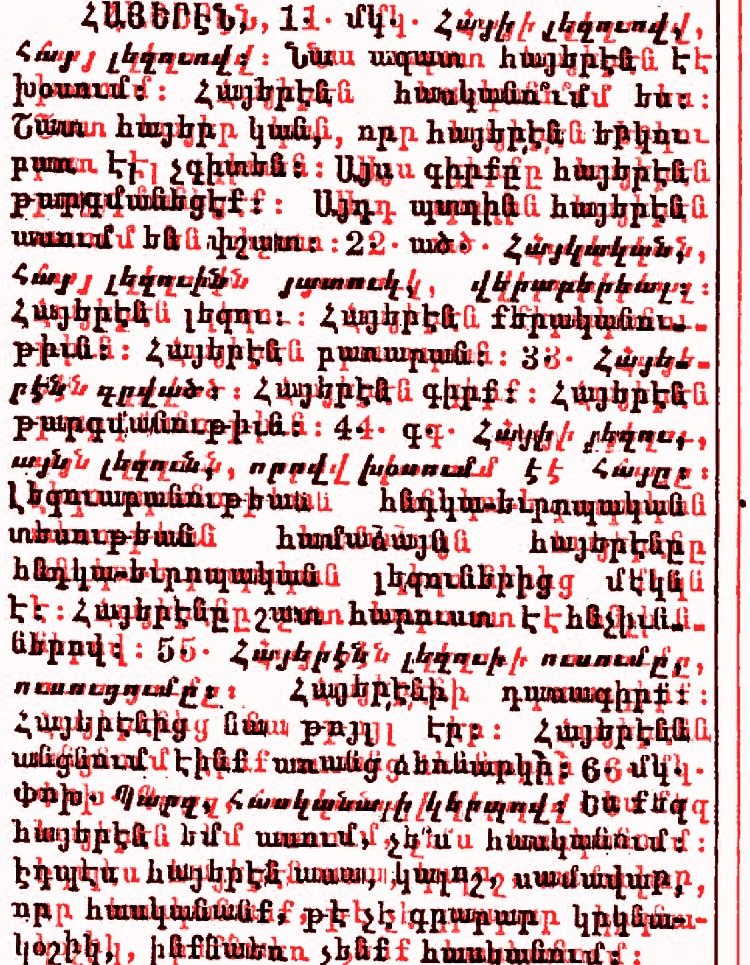 ՀԱՅԵՐԷՆ, 1. մկ. Հայի լեզուով,
Հայ լեզուով։ Նա ազատ հայերէն է
խօսում։ Հայերէն հասկանո՞ւմ ես։
Շատ հայեր կան, որ հայերէն երկու
բառ էլ չգիտեն։ Այս գիրքը հայերէն
թարգմանեցէք։ Այդ պտղին հայերէն
ասում են փշատ։ 2. ած. Հայկական,
Հայ լեզուին յատուկ, վերաբերեալ։
Հայերէն լեզու։ Հայերէն քերականու-
թիւն։ Հայերէն բառարան։ 3. Հայե-
րէն գրված։ Հայերէն գիրք։ Հայերէն
թարգմանութիւն։ 4. գ. Հայի լեզու,
այն լեզուն, որով խօսում է Հայը։
Լեզուաբանութեան հնդկա-եւրոպական
տեսութեան համաձայն հայերէնը
հնդկա-եւրոպական լեզուներից մէկն
է։ Հայերէնը շատ հարուստ է հնչիւն-
ներով։ 5. Հայերէն լեզուի ուսումը,
ուսուցումը։ Հայերէնի դասագիրք։
Հայերէնից նա թոյլ էր։ Հայերէնն
անցնում էինք առանց ձեռնարկի։ 6. մկ.
Փոխ. Պարզ, Հասկանալի կերպով։ Ես քեզ
հայերէն եմ ասում, չե՞ս հասկանում։
Էդպէս հայերէն ասա, կալոշ, սամավար,
որ հասկանանք, թէ չէ գրաբար կրկնա-
կօշիկ, ինքնաեռ չենք հասկանում։